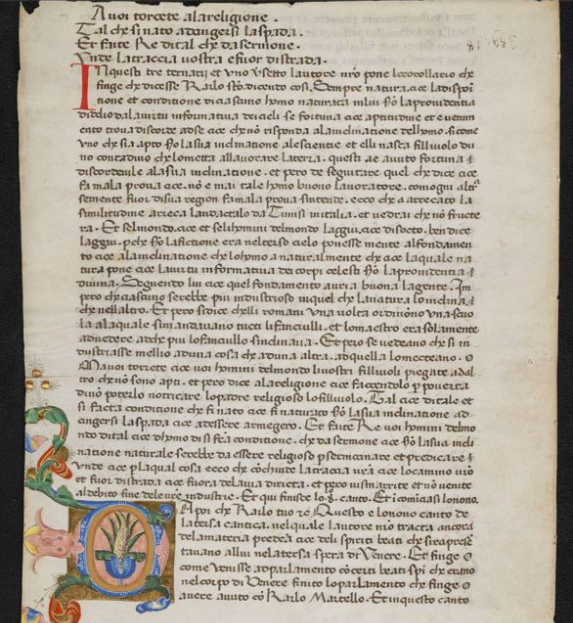 A voi torcete alareligione.
Tal che si nato adcingersi laspada.
Et fatte Re di tal che da sermone.
Unde latraccia vostra e fuor di strada.
In questi tre ternarii et uno versetto lautore nro pone locorollario che
finge che dicesse Karlo sto dicendo cosi. Sempre natura. cioe ladisposi
tione et conditione di ciascuno homo naturata in lui secondo laprovidentia
didio dalavirtu informativa de cieli se fortuna cioe aptitudine et evenim
ento trova discorde adse cioe che no risponda alainclinatione delhomo. si come
uno che sia apto secondo lasua inclinatione alescientie et elli nasca figliuolo du
no contadino che lometta allavorare laterra. questi ae avuto fortuna
discordeuile alasua inclinatione. et pero de seguitare quel che dice cioe
fa mala prova cioe no e mai tale homo buono lavoratore. comogni altra
semente fuor di sua region fa mala prova sintende. ecco che a arrecato la
similitudine
ra. Et selmondo. cioe et selihomini delmondo laggiu. cioe disocto. ben dice
laggiu. perche secondo lafictione era nelterso cielo ponesse mente alfondamen
to cioe alainclinatione che lohomo a naturalmente che cioe laquale na
tura pone cioe lavirtu informativa dei corpi celesti secondo laprovidentia
divina. Seguendo lui cioe quel fondamento avria buona lagente. Im
pero che ciascuno serebbe piu industrioso in quel che lanatura lo inclina
che nellaltro. Et pero si dice che li romani una volta ordinono una scuo
la alaquale si mandavano tucti li fanciulli. et lomaestro era solamente
advedere adche piu lofanciullo sinclinava. Et pero se vedeano che si in
dustriasse mellio aduna cosa che aduna altra. adquella lometteano.
Ma voi torcete cioe voi homini delmondo livostri figliuoli piegate adal
tro che no sono apti. et pero dice alareligione cioe faccendolo per poverta
di no poterlo notricare lopatre religioso lofigliuolo. Tal cioe di tale et
si facta conditione che si nato cioe si naturato secondo lasua inclinatione ad
cingersi laspada cioe adessere armegero. Et fatte Re voi homini delmo
ndo di tal cioe dhomo di si facta conditione. che da sermone cioe secondo lasua incli
natione naturale serebbe da essere religioso per sermonare et predicare
Unde cioe per laqual cosa ecco che conchiude latraccia vostra cioe locamino vostro
et fuor di strada cioe fuora delavia diricta. et pero vismarrite et no venite
aldebito fine delevostre industrie. Et qui finisce lo 8. canto. Et comiciasi lonono.
Dapoi che Karlo tuo &c Questo e lonono canto de
laterza cantica. nelquale lautore nro tracta ancora
delamateria predecta cioe deli spiriti beati che sirapresen
tavano allui nelaterza spera di Venere. Et finge
come venisse adparlamento co certi beati spiriti che erano
nelcorpo di Venere finito loparlamento che finge
avere avuto co Karlo Martello. Et in questo canto